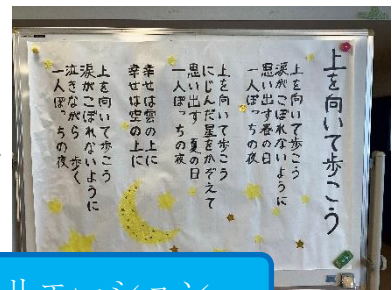 上を向いて歩こう
上を向いて歩こう
涙がこぼれないように
思い出す春の日
一人ぼっちの夜
上を向いて歩こう
にじんだ星をかぞえて
思い出す夏の日
一人ぼっちの夜
幸せは雲の上に
幸せは空の上に
上を向いて歩こう
涙がこぼれないように
泣きながら歩く
一人ぼっちの夜